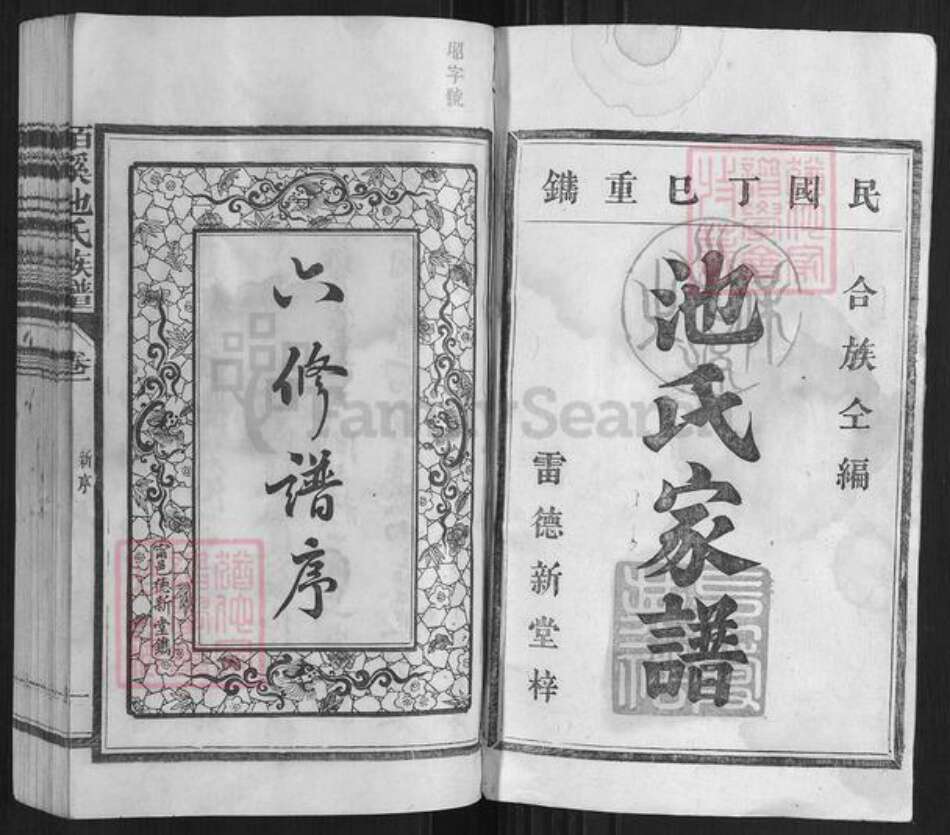 民國丁巳重鐫
合族仝編
池氏家譜
雷德新堂梓
六修譜序
德新堂鐫
池氏族譜
卷一
新序
FamilySearch